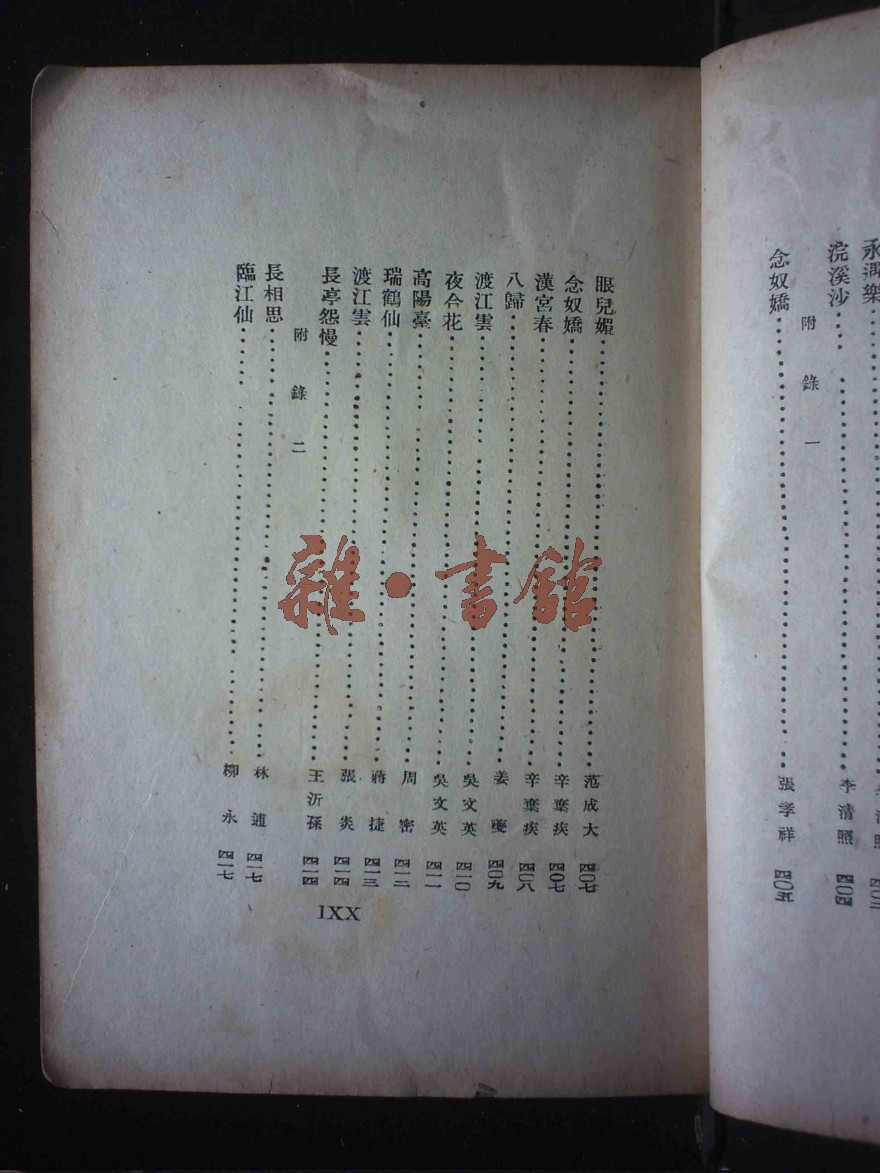 永遇樂
浣溪沙………李清照 四〇四
附錄一
念奴嬌………張孝祥 四〇五
眼兒媚………范成大 四〇七
念奴嬌………辛棄疾 四〇七
漢宮春………辛棄疾 四〇八
八歸………姜夔 四〇九
渡江雲………吳文英 四一〇
夜合花………吳文英 四一一
高陽臺………周密 四一二
瑞鶴仙………蔣捷 四一三
渡江雲………張炎 四一四
長亭怨慢………王沂孫 四一四
附錄二
長相思………林逋 四一七
臨江仙………柳永 四一七
1XX
雜·書館